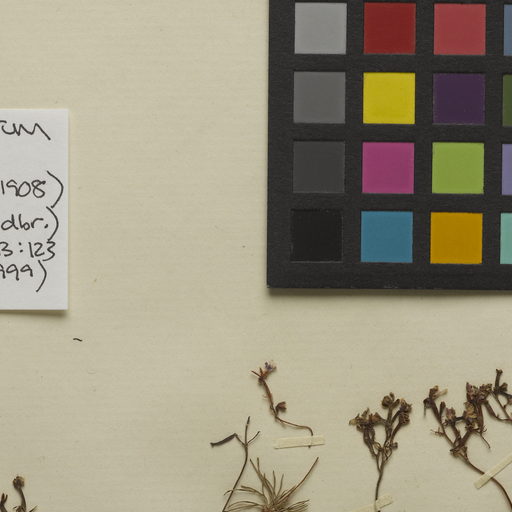 1908)
dbr.)
3:123
999)